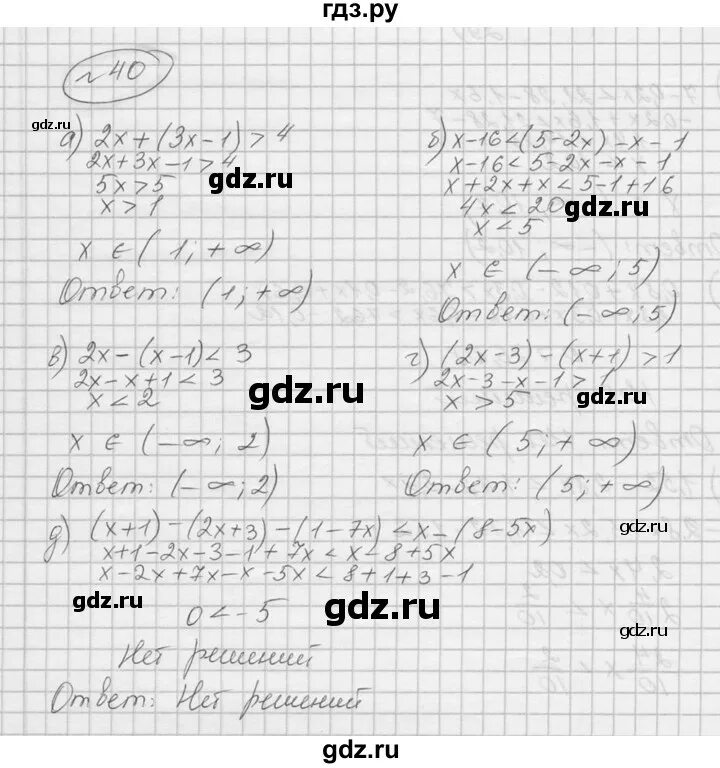 гдз.ру
№40
а) 2x+(3x-1)>4
2x+3x-1>4
5x>5
x>1
x ∈ (1; +∞)
Ответ: (1; +∞)
б) x-16<(5-2x)-x-1
x-16<5-2x-x-1
x+2x+x<5-1+16
4x<20
x<5
x ∈ (-∞; 5)
Ответ: (-∞; 5)
в) 2x-(x-1)<3
2x-x+1<3
x<2
x ∈ (-∞; 2)
Ответ: (-∞; 2)
г) (2x-3)-(x+1)>1
2x-3-x-1>1
x>5
x ∈ (5; +∞)
Ответ: (5; +∞)
д) (x+1)-(2x+3)-(1-7x)<x-(8-5x)
x+1-2x-3-1+7x<x-8+5x
x-2x+7x-x-5x<8+1+3-1
0<-5
Нет решений
Ответ: Нет решений
gdz.ru
gdz.ru
gdz.ru
gdz.ru
gdz.ru
gdz.ru
gdz.ru
gdz.ru
gdz.ru
gdz.ru
gdz.ru